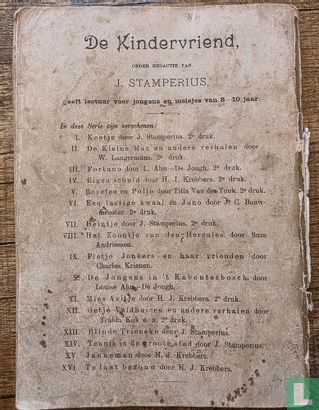 De Kindervriend,
ONDER REDACTIE VAN
J. STAMPERIUS,
geeft lectuur voor jongens en meisjes van 8-10 jaar
In deze Serie zijn verschenen:
I. Keetje door J. Stamperius. 2e druk.
II. De Kleine Max en andere verhalen door
W. Langermans. 2e druk.
III. Fortuno door L. Ahn-De Jongh. 2e druk.
IV. Eigen schuld door H. J. Krebbers. 2e druk.
V. Rozefee en Pollo door Titia Van der Tuuk. 2e druk.
VI. Een lastige kwaal en Juno door J. C. Bouw-
meester. 2e druk.
VII. Heintje door J. Stamperius. 2e druk.
VIII. Het Zoontje van den Hercules door Suze
Andriessen.
IX. Fietje Jonkers en haar vrienden door
Charles Krienen.
X. De Jongens in 't Kabouterbosch door
Louise Ahn-De Jongh.
XI. Mies Aaltje door H. J. Krebbers. 2e druk.
XII. Oetje Veldhuizen en andere verhalen door
Truida Kok e. a. 2e druk.
XIII. Blinde Trieneke door J. Stamperius.
XIV. Teunis in de groote stad door J. Stamperius.
XV. Janneman door H. J. Krebbers.
XVI. Te laat berouw door H. J. Krebbers.